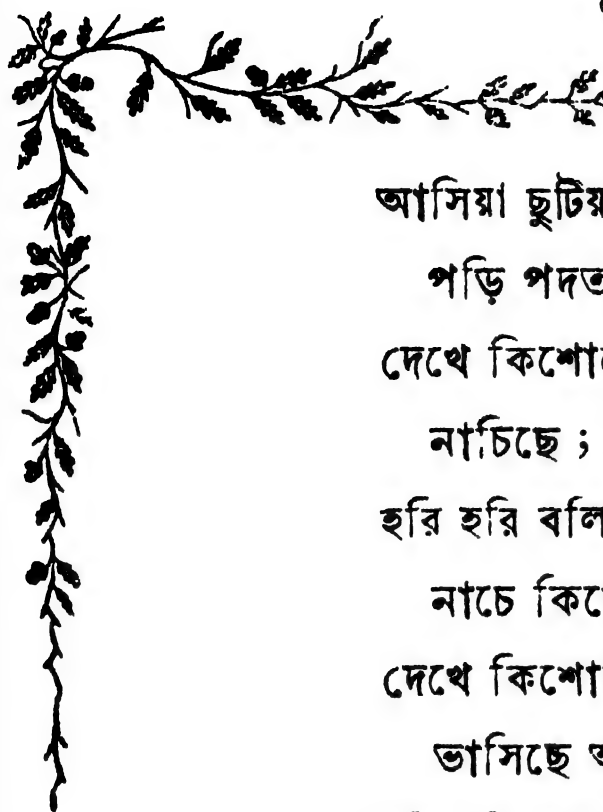 আসিয়া ছুটিয়
পড়ি পদত
দেখে কিশো
নাচিছে ;
হরি হরি বলি
নাচে কি
দেখে কিশো
ভাসিছে